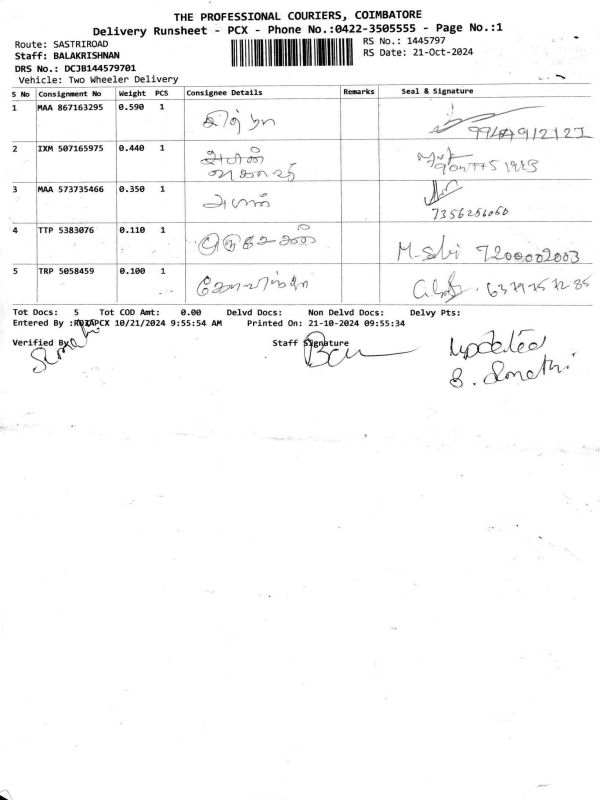 THE PROFESSIONAL COURIERS, COIMBATORE
Delivery Runsheet - PCX - Phone No.:0422-3505555 - Page No.:1
Route: SASTRIROAD RS No.: 1445797
Staff: BALAKRISHNAN RS Date: 21-Oct-2024
DRS No.: DCJB144579701
Vehicle: Two Wheeler Delivery
S No Consignment No Weight PCS Consignee Details Remarks Seal & Signature
1 MAA 867163295 0.590 1
2 IXM 507165975 0.440 1
3 MAA 573735466 0.350 1
7356256060
4 TTP 5383076 0.110 1 M-Sabi 7200002003
5 TRP 5058459 0.100 1 6379757285
Tot Docs: 5 Tot COD Amt: 0.00 Delvd Docs: Non Delvd Docs: Delvy Pts:
Entered By : 10/21/2024 9:55:54 AM Printed On: 21-10-2024 09:55:34
Verified By Staff Signature updated
Sumathi S. Sumathi